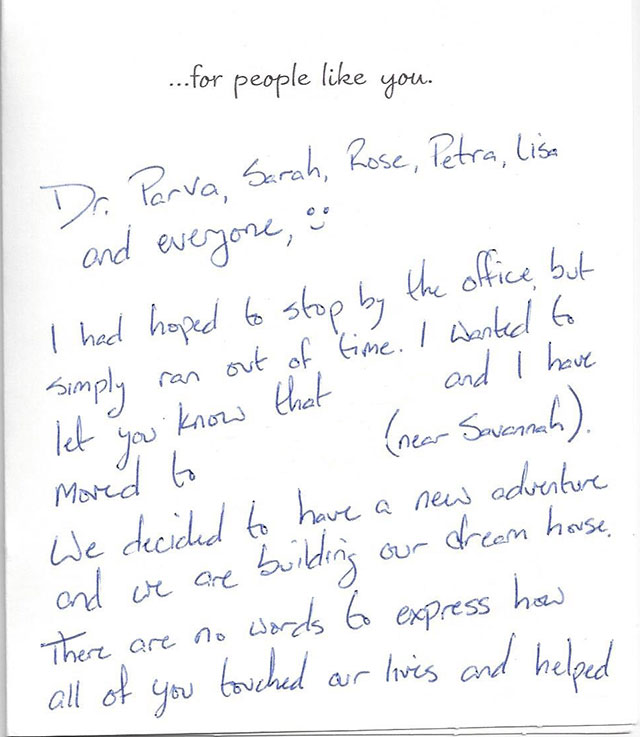 ...for people like you.
Dr. Parva, Sarah, Rose, Petra, Lisa
and everyone,
I had hoped to stop by the office, but
simply ran out of time. I wanted to
let you know that and I have
moved to (near Savannah).
We decided to have a new adventure
and we are building our dream house.
There are no words to express how
all of you touched our lives and helped